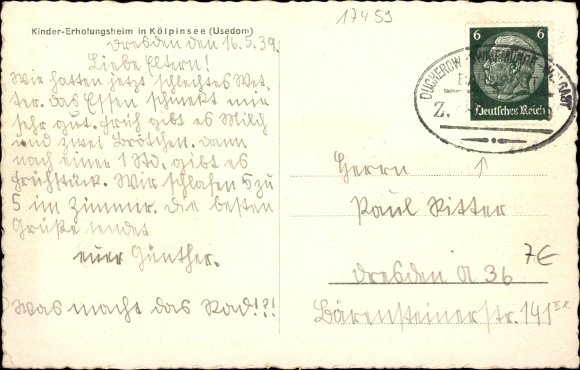 17459
Kinder-Erholungsheim in Kölpinsee (Usedom)
Dresden den 16.5.39.
Liebe Eltern!
Wir hatten jetzt schlechtes Wet-
ter. Das Essen schmekt mir
sehr gut. Früh gibt es Milch
und zwei Brötchen. Dann
nach einer 1 Std. gibt es
Frühstück. Wir schlafen 5 zu
5 im Zimmer. Die besten
Grüße sendet
euer Günther.
Was macht das Rad!?!
6 6
Deutsches Reich
DUCHEROW
Z.
Herrn
Paul Ritter
7€
Dresden A 36
Bärensteinerstr. 141